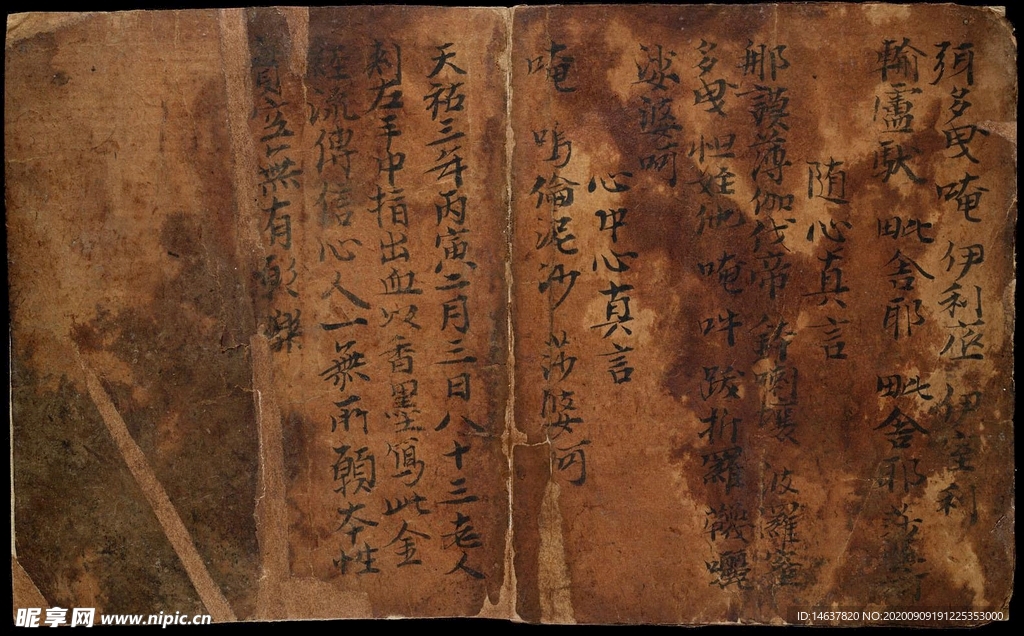 須多曳唵 伊利蓙 伊室利
輸盧馱 毗舍耶 毗舍耶 莎婆訶
隨心真言
那謨薄伽伐帝 鉢喇壤 波羅蜜
多曳怛姪他 唵 吽 跋折羅
莎婆呵
心中心真言
唵 嗚倫泥沙 莎婆訶
天祐三年丙寅二月三日八十三老人
刾左手中指出血以香墨寫此金
經流傳信心人一無所願本性
實空無有願樂
昵享网 www.nipic.cn
ID:14637820 NO:20200909191225353000